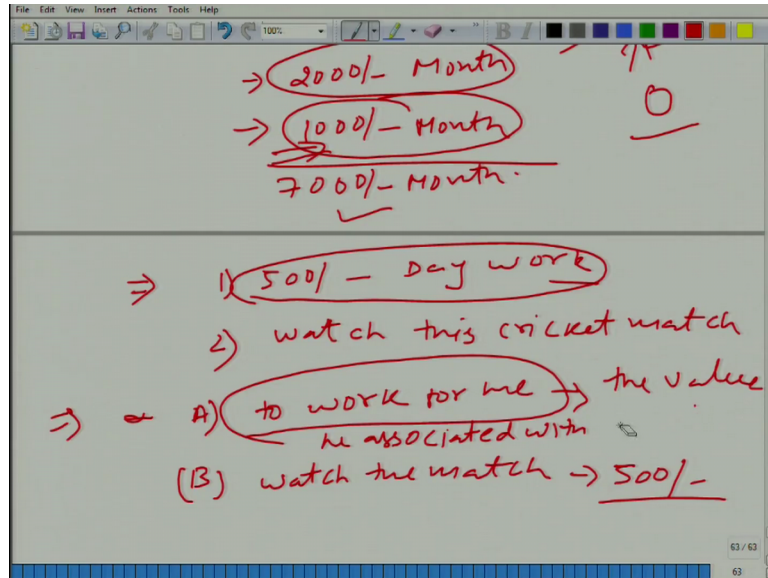 File Edit View Insert Actions Tools Help
100%
B I
→ 2000/- Month
→ 1000/- Month
0
7000/- Month.
⇒ 1) 500/- Day work
2) watch this cricket match
⇒ A) to work for me → the value
he associated with
(B) watch the match → 500/-
63 / 63
63